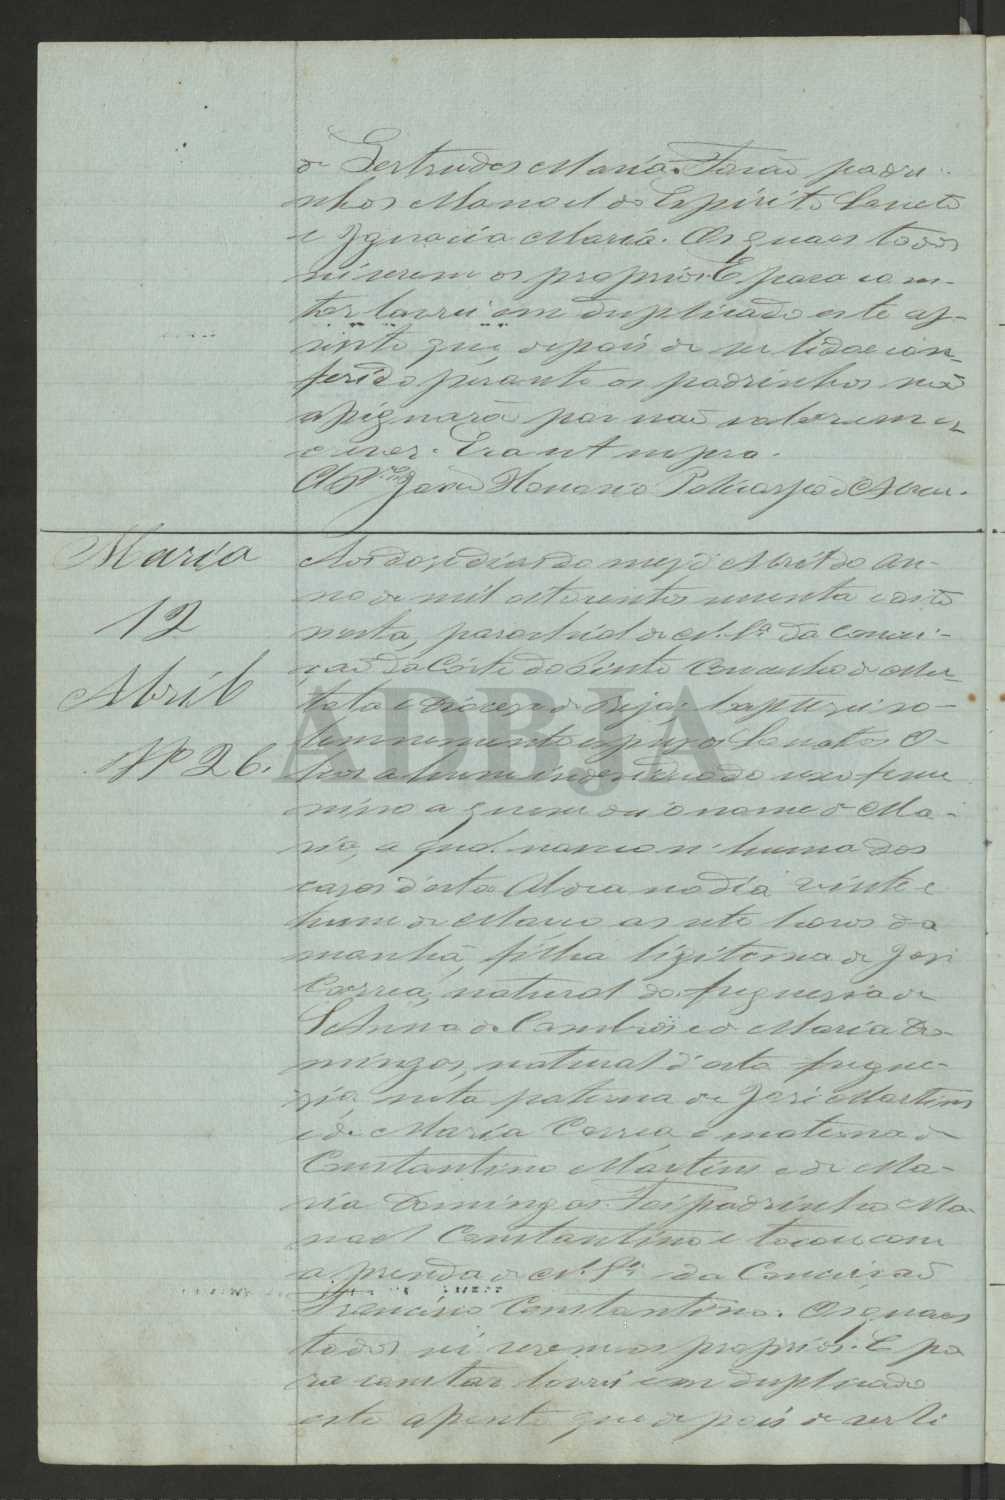 de Gertrudes Maria. Forão padri-
nhos Manoel do Espirito Sancto
e Ignacia Maria. Os quaes todos
sei serem os proprios. E para cons-
tar lavrei em duplicado este as-
sento que, depois de ser lido e con-
ferido perante os padrinhos não
assignarão por não saberem es-
crever. Era ut supra.
José Honorio Policarpo d'Abreu.
Maria
12
Abril
Nº 26.
Aos doze dias do mez d'Abril do an-
no de mil oitocentos sessenta e oito
nesta parochial de N. Sra da Concei-
ção da Côrte do Pinto Concelho de Mer-
tola e Diocese de Beja: baptizei so-
lemnemente e puz os Sanctos O-
leos a hum individuo do sexo femi
nino a quem dei o nome de Ma-
ria, a qual nasceo n'huma das
casas d'esta Aldea no dia vinte e
hum de Março as sete horas da
manhã, filha ligitima de José
Correa, natural da freguesia de
S. Anna de Cambas e de Maria Do-
mingos, natural d'esta fregue-
sia, neta paterna de José Martins
e de Maria Correa, e materna de
Constantino Martins e de Ma-
ria Domingas. Foi padrinho Ma-
noel Constantino e tocou com
a prenda de N. Sra da Conceição
Francisco Constantino. Os quaes
todos sei serem os proprios. E pa
ra constar lavrei em duplicado
este assento que depois de ser li
ADBJA